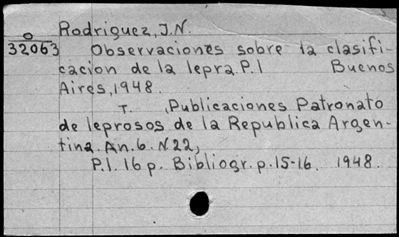 Rodriguez, J.N.
O
32063 Observaciones sobre la clasifi-
cacion de la lepra. P.1 Buenos
Aires, 1948.
T. , Publicaciones Patronato
de leprosos de la Republica Argen-
tina. An. 6. N22,
P.1. 16 p. Bibliogr. p. 15-16. 1948.